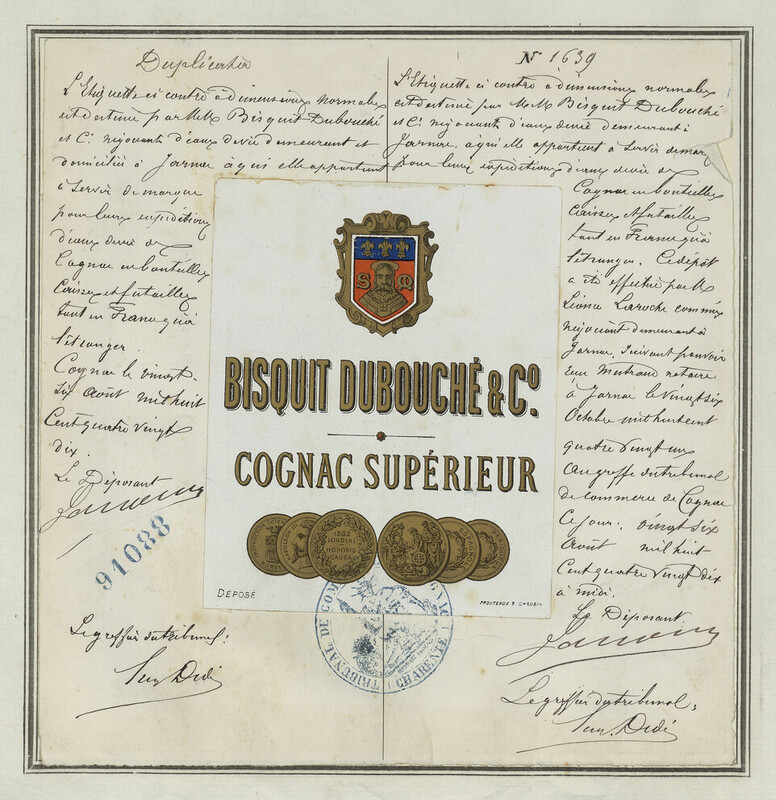 Duplicata
L'Etiquette ci contre à dimensions normales
est destinée par MM Bisquit Dubouché
et Cie négociants d'eaux de vie demeurant et
domiciliés à Jarnac à qui elle appartient
à servir de marque
pour leurs expéditions
d'eaux de vie de
Cognac en bouteilles
Caisses et futailles
tant en France qu'à
l'étranger.
Cognac le vingt-
six Août mil huit
Cent quatre vingt
dix.
Le Déposant
91088
Le greffier du tribunal:
No 1639
L'Etiquette ci contre à dimensions normales
est destinée par MM. Bisquit Dubouché
et Cie négociants d'eaux de vie demeurant à
Jarnac, à qui elle appartient à servir de marque
pour leurs expéditions d'eaux de vie de
Cognac en bouteilles
Caisses et futailles
tant en France qu'à
l'étranger. Ce dépôt
a été effectué par M
Léonce Laroche commis
négociant demeurant à
Jarnac, suivant pouvoir
notaire
à Jarnac le vingt six
Octobre mil huit cent
quatre vingt un
au greffe du tribunal
de commerce de Cognac
Ce jour, vingt six
Août mil huit
Cent quatre vingt dix
à midi.
Le Déposant.
Le greffier du tribunal:
S M
BISQUIT DUBOUCHÉ & Co.
COGNAC SUPÉRIEUR
1862
LONDINI
HONORIS
CAUSA
DÉPOSÉ
TRIBUNAL DE COM
CHARENTE